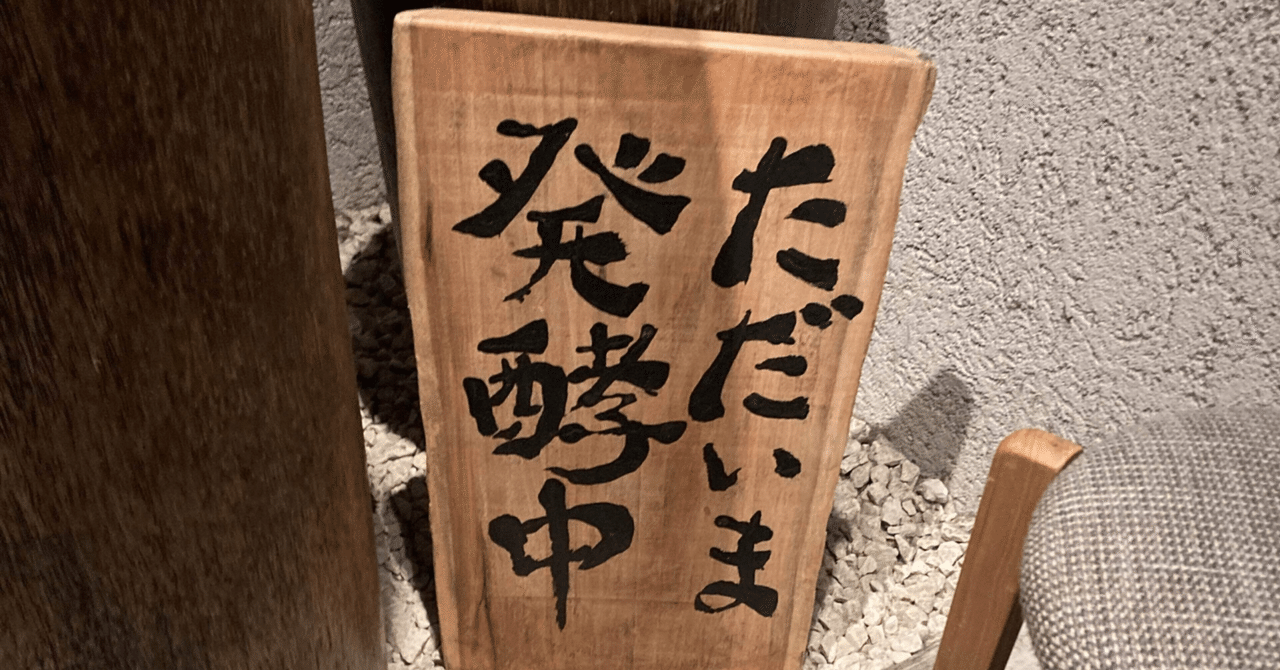 ただいま
発酵中